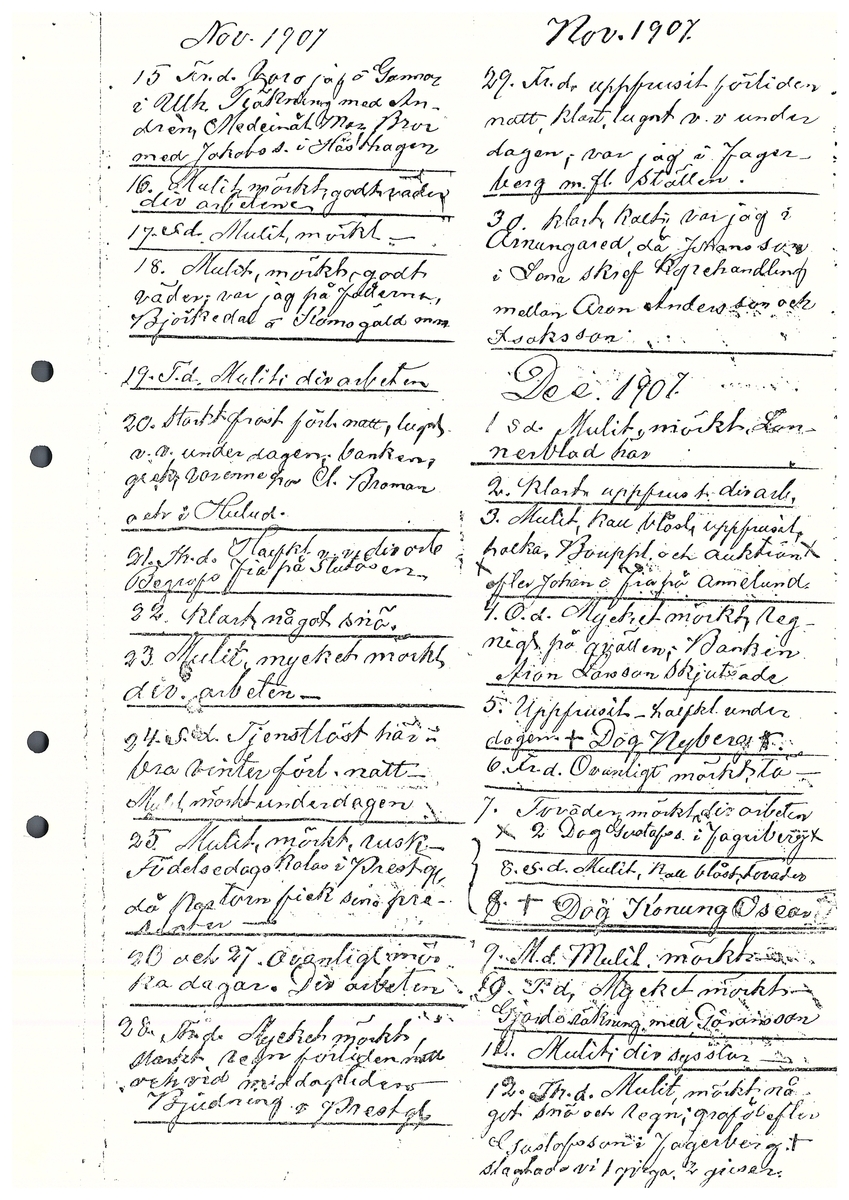 Nov. 1907
15 Fr.d. Voro jag å Gannar
i Ulh. Tjäkning med An-
drén, Medeinåt Bror
med Jakobs s. i Hästhagen
16. Mulit, mörkt, godt väder
div arbetene
17. sd. Mulit, mörkt
18. Mulit, mörkt, godt
väder; var jag på
Björkedal å Komogäld mm
19. T.d. Mulit; div arbeten
20. starkt frost förl. natt, lugnt
v.v. under dagen; banken,
hos Cl. Broman
och i Hulud.
21. Th.d. Halfkl. v.v. div arb
Begrofs Fia på Slutåsen
22. Klart, något snö.
23. Mulit, mycket mörkt,
div. arbeten
24. s.d. Tjenstlöst här
bra vinter förl. natt
Mulit, mörkt under dagen
25. Mulit, mörkt, rusk
Födelsedags Kalas i Prestg.,
då Pastorn fick sina pre-
senter
26 och 27. Ovanligt mör-
ka dagar. Div arbeten
28. Th.d. Mycket mörkt,
starkt regn förliden natt
och vid middagstiden
Bjudning i Prestg.
Nov. 1907.
29. Fr.d. uppfrusit förliden
natt, klart, lugnt v.v under
dagen; var jag i Jager-
berg m.fl. ställen.
30. Klart, kallt, var jag i
Arnungared, då Johansson
i Lona skref Köpehandling
mellan Aron Andersson och
Isaksson
Dec. 1907.
1 sd. Mulit, mörkt, Lan-
nerblad här
2. Klart, uppfrust. div arb.
3. Mulit, kall blåst, uppfrusit,
halka. Bouppt. och auktion +
+ efter Johan å Fia på Annelund.
4. O.d. Mycket mörkt, reg-
nigt på qvällen; Banken
Aron Larsson Skjutsade
5. Uppfrusit - halfkl. under
dagen + Dog Nyberg +
6. Fr.d. Ovanligt mörkt, tö
7. Töväder, mörkt, div arbeten
+ 2 Dog Gustafss. i Jagerberg +
8. s.d. Mulit, kall blåst, töväder
8. + Dog Konung Oscar
9. M.d. Mulit. mörkt
10. T.d. Mycket mörkt
Gjorde räkning med Göransson
11. Mulit; div sysslor
12. Th.d. Mulit, mörkt, nå-
got snö och regn; graföl efter
Gustafsson i Jagerberg. +
slagtade vi 1 qviga, 2 griser.